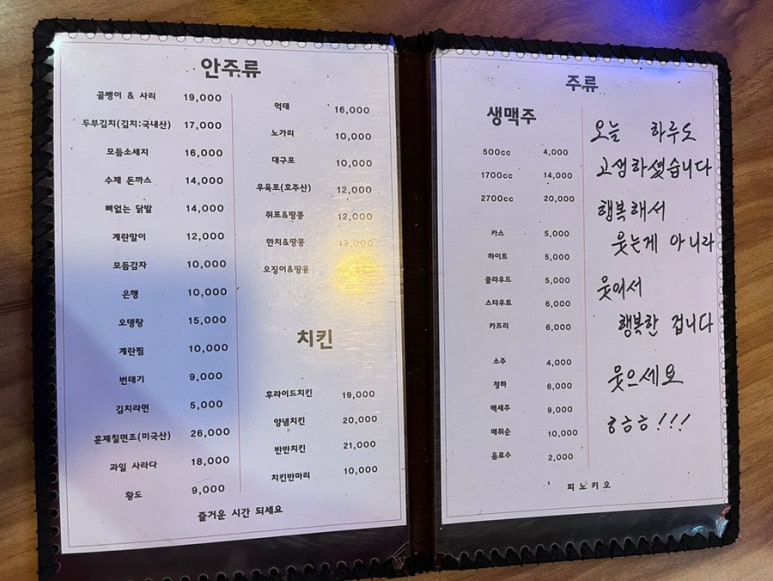 안주류
골뱅이 & 사리 19,000
두부김치(김치:국내산) 17,000
모듬소세지 16,000
수제 돈까스 14,000
뼈없는 닭발 14,000
계란말이 12,000
모듬감자 10,000
은행 10,000
오뎅탕 15,000
계란찜 10,000
번데기 9,000
김치라면 5,000
훈제칠면조(미국산) 26,000
과일 사라다 18,000
황도 9,000
먹태 16,000
노가리 10,000
대구포 10,000
우육포(호주산) 12,000
쥐포&땅콩 12,000
한치&땅콩 13,000
오징어&땅콩
치킨
후라이드치킨 19,000
양념치킨 20,000
반반치킨 21,000
치킨반마리 10,000
즐거운 시간 되세요
주류
생맥주
500cc 4,000
1700cc 14,000
2700cc 20,000
카스 5,000
하이트 5,000
클라우드 5,000
스타우트 6,000
카프리 6,000
소주 4,000
청하 6,000
백세주 9,000
매취순 10,000
음료수 2,000
오늘 하루도
고생하셨습니다
행복해서
웃는게 아니라
웃어서
행복한 겁니다
웃으세요
ㅎㅎㅎ!!!
피노키오